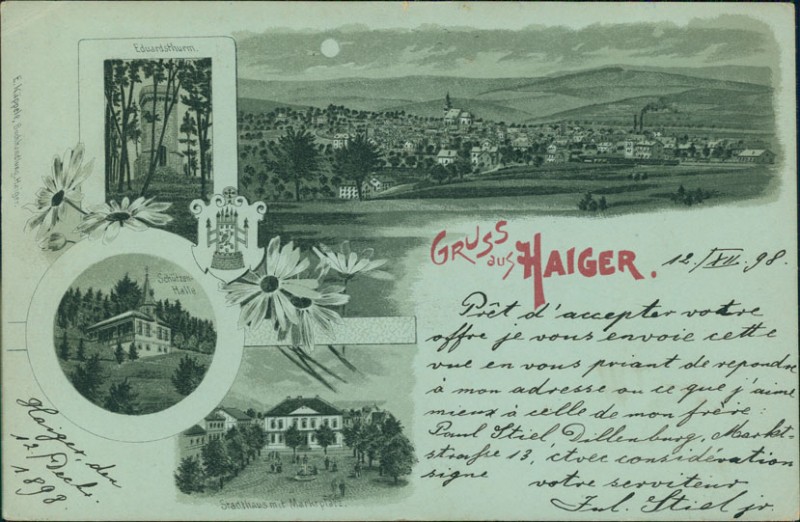 Eduardsthurm.
GRUSS aus HAIGER.
12./XII. 98.
Schützen-
Halle
Prêt d'accepter votre
offre je vous envoie cette
vue en vous priant de repondre
à mon adresse ou ce que j'aime
mieux à celle de mon frère:
Paul Stiel, Dillenburg, Markt-
straße 13, et vec considération
signe votre serviteur
Jul. Stiel jr.
Haiger, den
12/ Decb.
1898
Stadthaus mit Marktplatz.